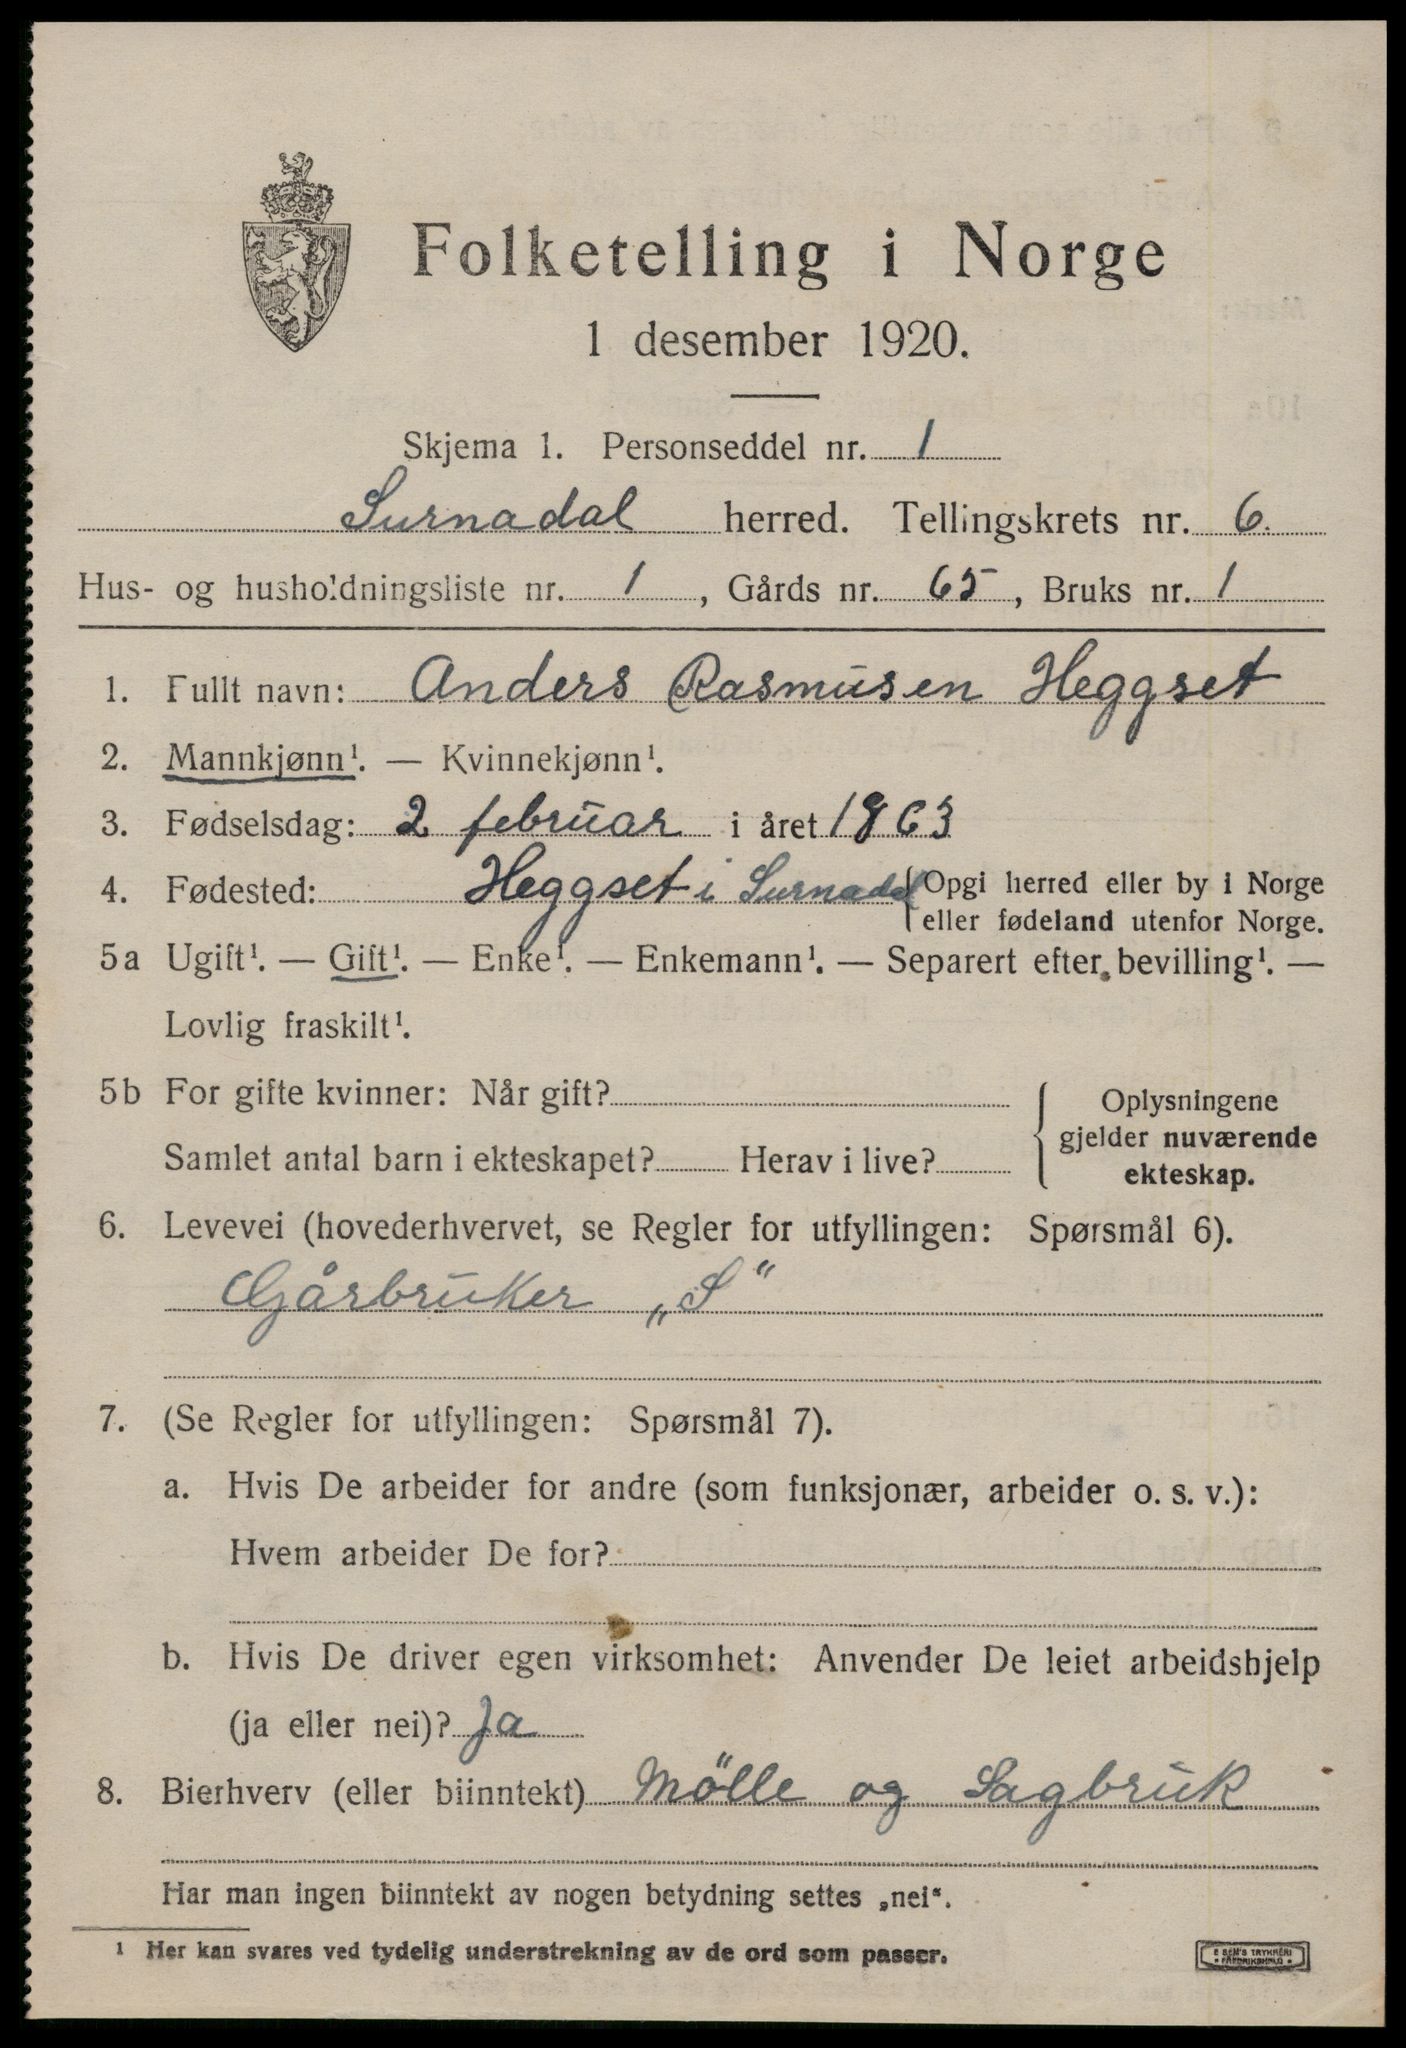 Folketelling i Norge
1 desember 1920.
Skjema 1. Personseddel nr. 1
Surnadal herred. Tellingskrets nr. 6.
Hus- og husholdningsliste nr. 1, Gårds nr. 65, Bruks nr. 1
1. Fullt navn: Anders Rasmusen Heggset
2. Mannkjønn¹. — Kvinnekjønn¹.
3. Fødselsdag: 2 februar i året 1863
4. Fødested: Heggset i Surnadal { Opgi herred eller by i Norge
eller fødeland utenfor Norge.
5a Ugift¹. — Gift¹. — Enke¹. — Enkemann¹. — Separert efter bevilling¹. —
Lovlig fraskilt¹.
5b For gifte kvinner: Når gift?
Samlet antal barn i ekteskapet? Herav i live?
Oplysningene
gjelder nuværende
ekteskap.
6. Levevei (hovederhvervet, se Regler for utfyllingen: Spørsmål 6).
Gårbruker „S"
7. (Se Regler for utfyllingen: Spørsmål 7).
a. Hvis De arbeider for andre (som funksjonær, arbeider o. s. v.):
Hvem arbeider De for?
b. Hvis De driver egen virksomhet: Anvender De leiet arbeidshjelp
(ja eller nei)? Ja
8. Bierhverv (eller biinntekt) Mölle og Sagbruk
Har man ingen biinntekt av nogen betydning settes „nei".
¹ Her kan svares ved tydelig understrekning av de ord som passer.
E SEM'S TRYKKERI
FREDRIKSHALD